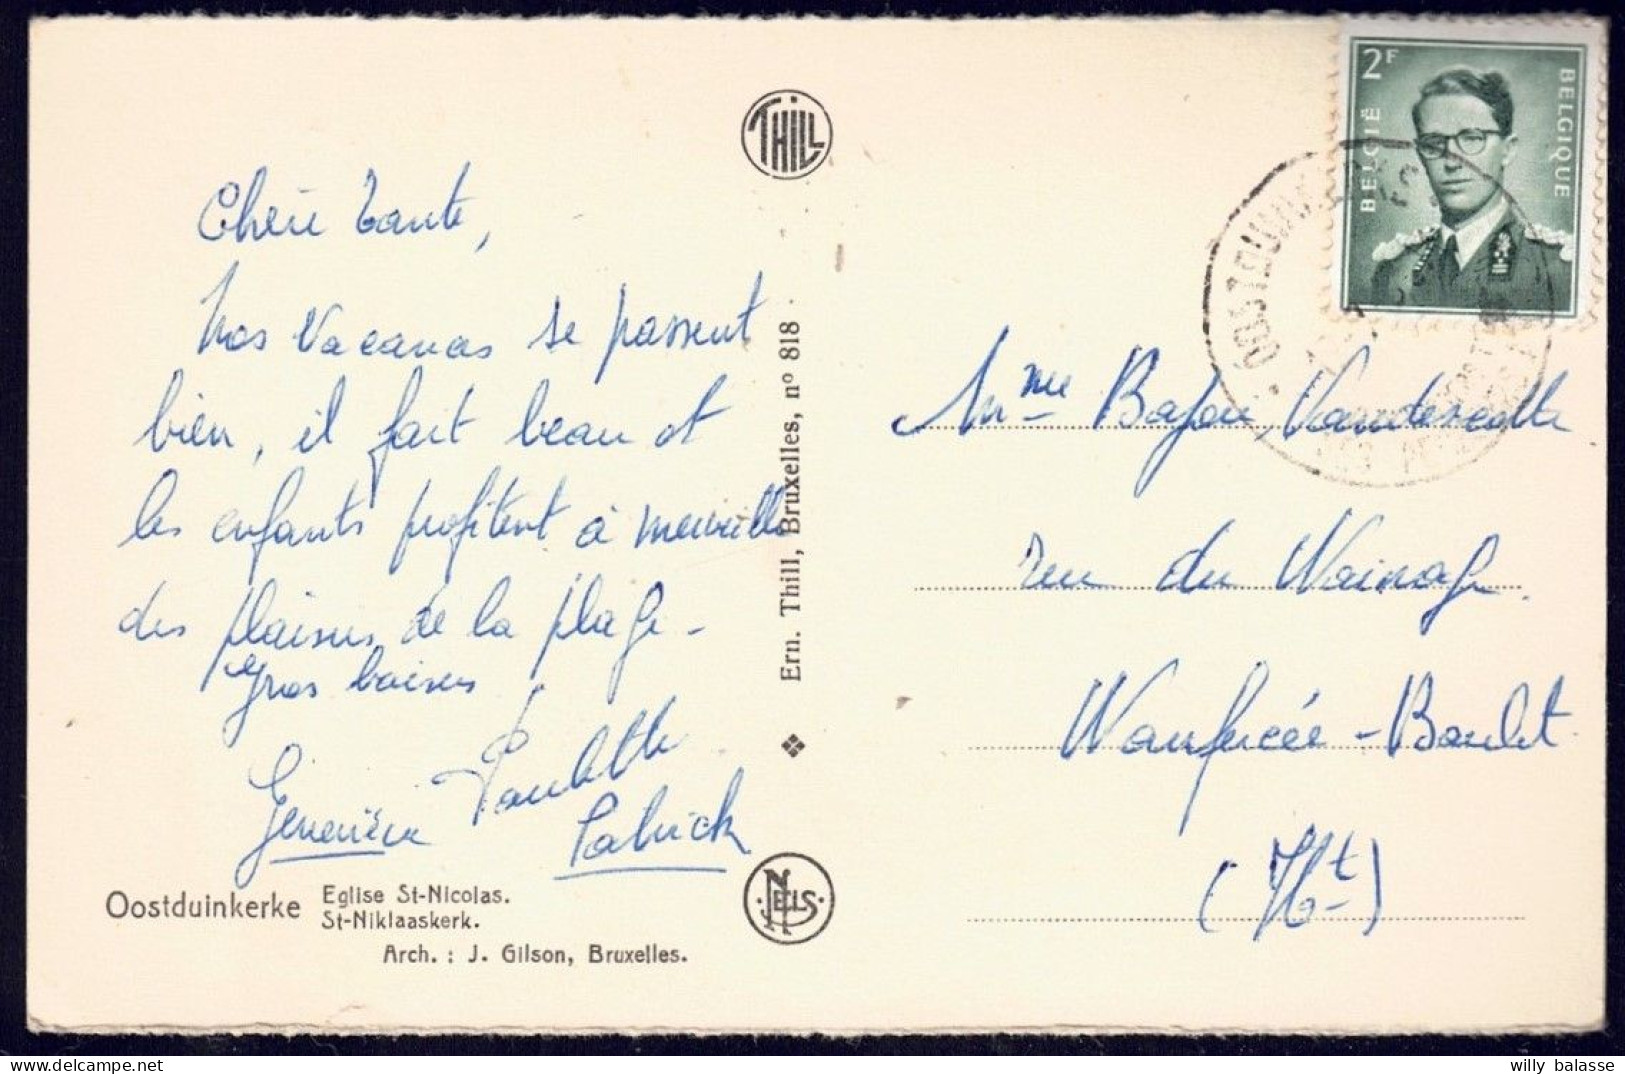 THILL
Chère Tante,
Nos Vacances se passent
bien, il fait beau et
les enfants profitent à merveille
des plaisirs de la plage -
Gros baisers
Paulette
Geneviève
Patrick
Oostduinkerke
Eglise St-Nicolas.
St-Niklaaskerk.
Arch. : J. Gilson, Bruxelles.
NELS
Ern. Thill, Bruxelles, nº 818.
2F
BELGIË
BELGIQUE
OOSTDUINK
Mme Bajou
rue du Wainage.
Wanfercée-Baulet.
(Ht)
willy balasse